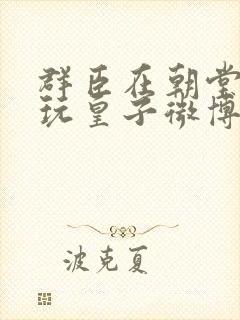 群臣在朝堂
玩皇子微博
波克夏